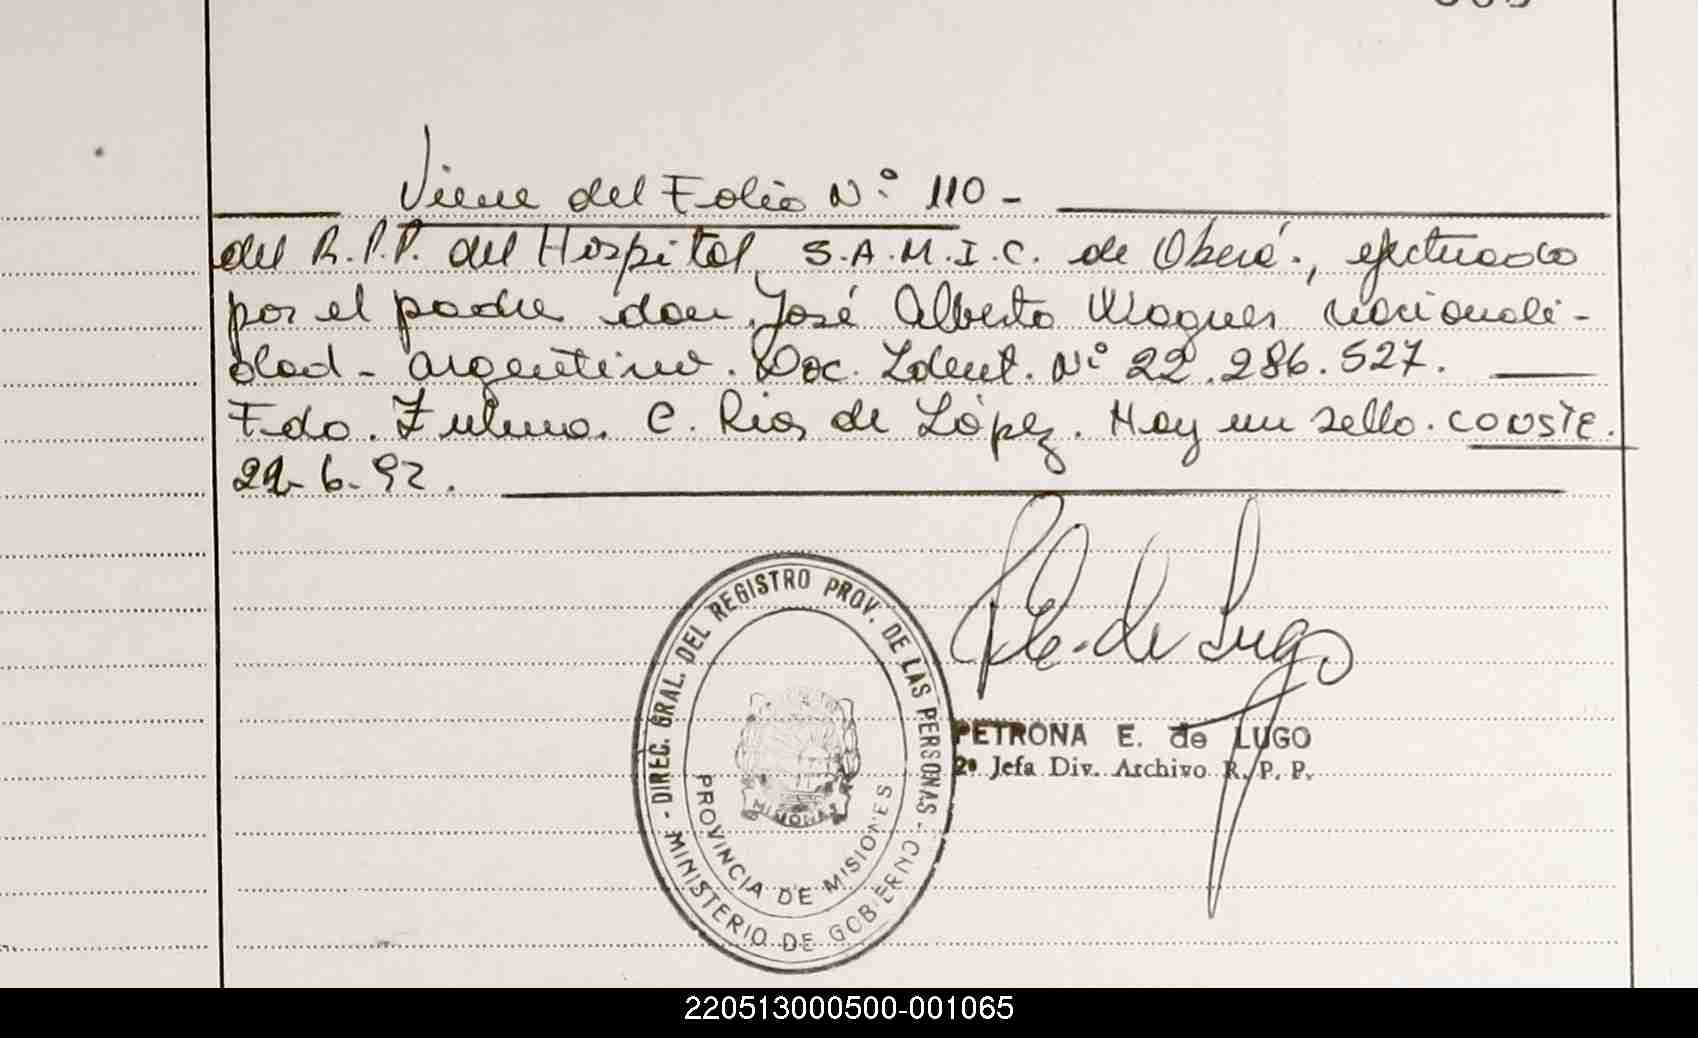 Viene del Folio N° 110 -
del R.P.P. del Hospital S.A.M.I.C. de Oberá., efectuado
por el padre don José Alberto Wagner nacionali-
dad - argentino. Doc. Ident. N° 22.286.527.
Fdo. Zulma. C. Rios de López. Hay un sello. CONSTE.
22-6-92.
P. E. de Lugo
- DIREC. GRAL. DEL REGISTRO PROV. DE LAS PERSONAS -
MINISTERIO DE GOBIERNO
PROVINCIA DE MISIONES
MISIONES
PETRONA E. de LUGO
2ª Jefa Div. Archivo R. P. P.
220513000500-001065